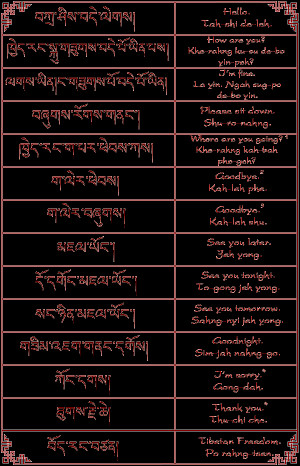 བཀྲ་ཤིས་བདེ་ལེགས།
Hello.
Tah shi de leh.
ཁྱེད་རང་སྐུ་གཟུགས་བདེ་པོ་ཡིན་པས།
How are you?
Khe rahng ku su de bo
yin peh?
ལགས་ཡིན། ང་གཟུགས་པོ་བདེ་པོ་ཡིན།
I'm fine.
La yin. Ngah sug po
de bo yin.
བཞུགས་རོགས་གནང་།
Please sit down.
Shu ro nahng.
ཁྱེད་རང་ག་པར་ཕེབས་ཀས།
Where are you going?
Khe rahng kah bah
phe geh?
ག་ལེར་ཕེབས།
Goodbye.²
Kah leh phe.
ག་ལེར་བཞུགས།
Goodbye.³
Kah leh shu.
མཇལ་ཡོང་།
See you later.
Jah yong.
དོ་དགོང་མཇལ་ཡོང་།
See you tonight.
To gong jah yong.
སང་ཉིན་མཇལ་ཡོང་།
See you tomorrow.
Sahng nyi jah yong.
གཟིམ་འཇག་གནང་དགོས།
Goodnight.
Sim jah nahng go.
I'm sorry.
Gong dah.
ཐུགས་རྗེ་ཆེ།
Thank you.
Thu chi che.
བོད་རང་བཙན།
Tibetan Freedom.
Po rahng tsen.